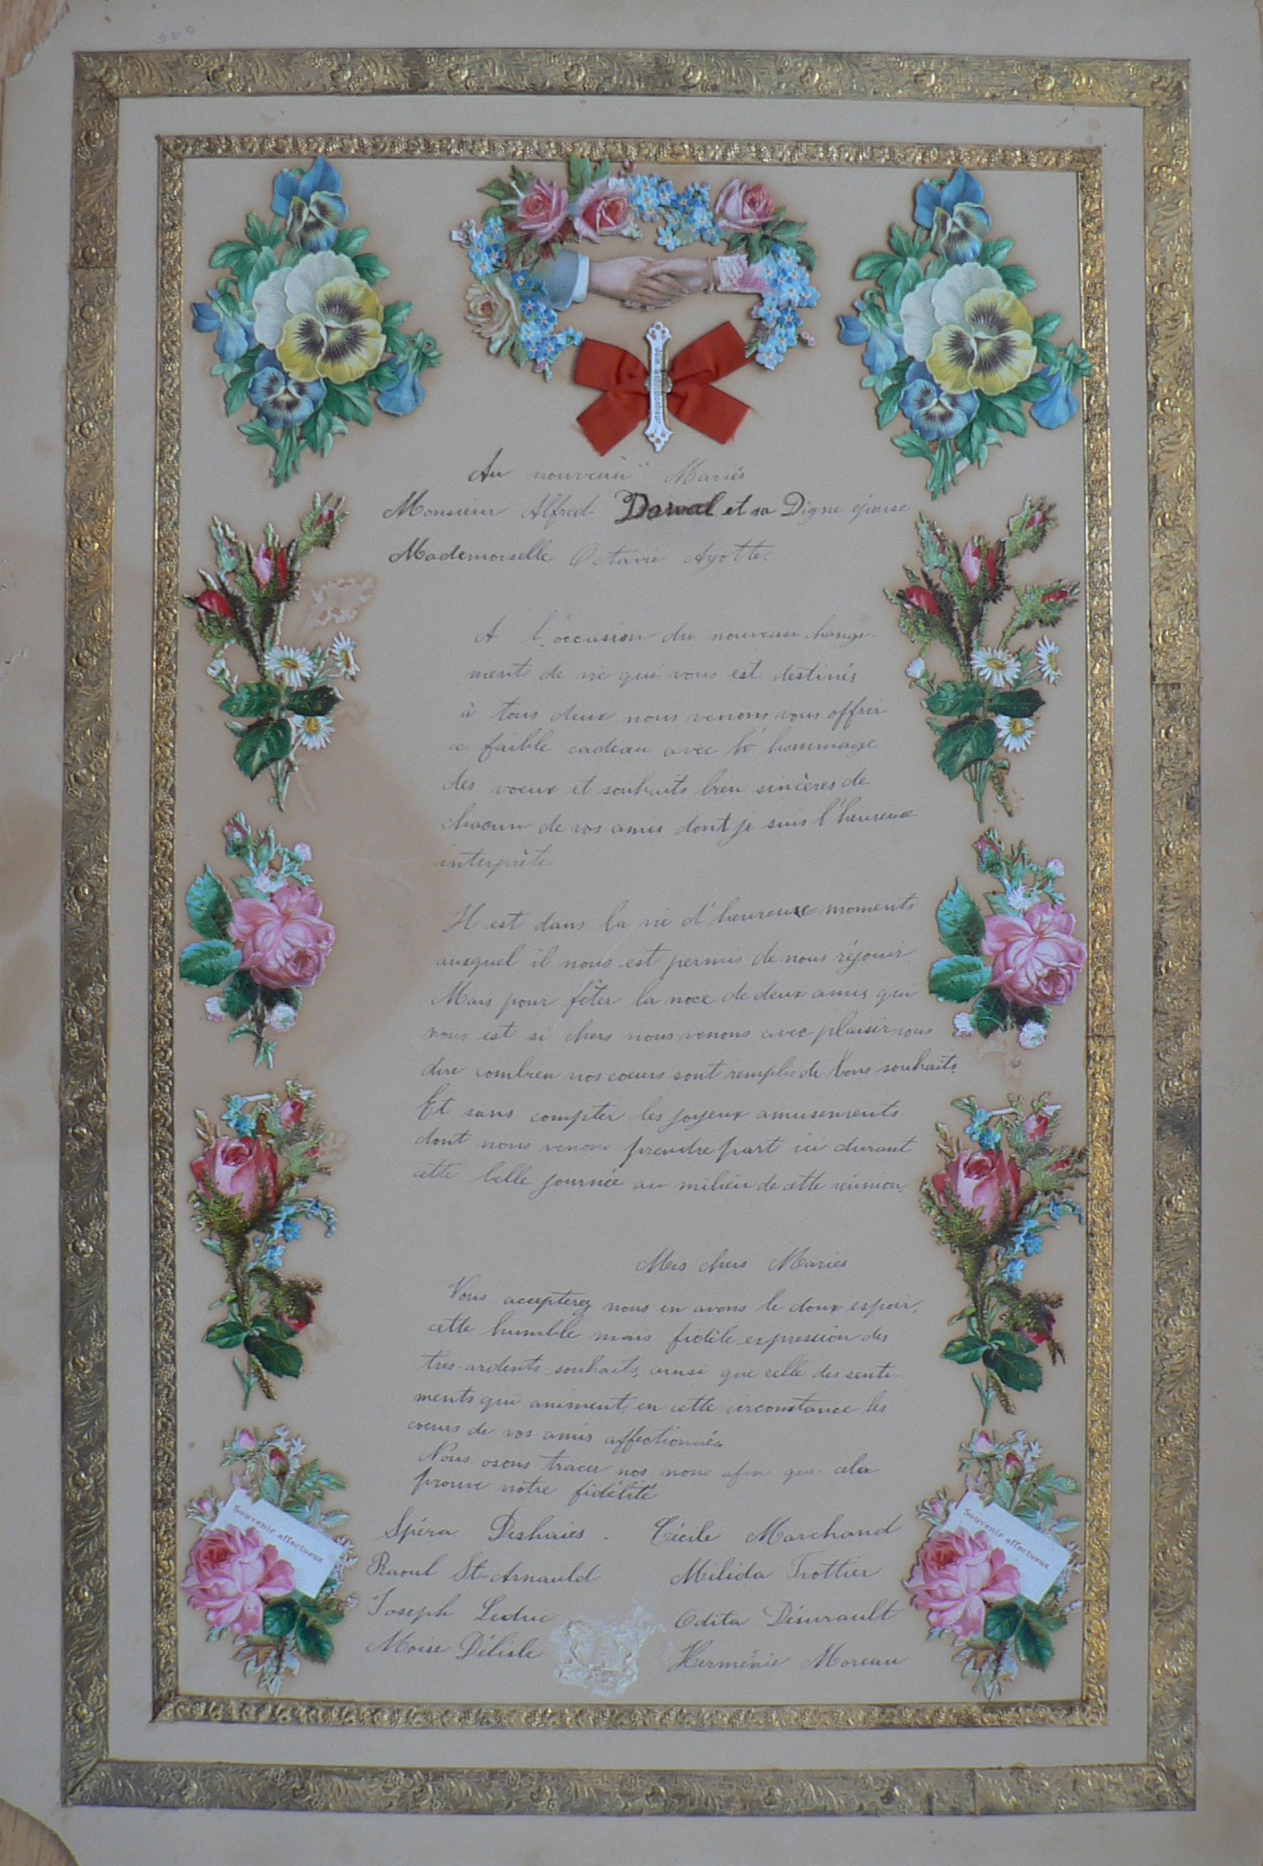 Au nouveau Mariés
Monsieur Alfred Dawal et sa Digne épouse
Mademoiselle Octavie Ayotte.
A l'occasion du nouveau change-
ment de vie qui vous est destinés
à tous deux nous venons vous offrir
ce faible cadeau avec l'hommage
des voeux et souhaits bien sincères de
chacun de vos amis dont je suis l'heureuse
interprète
Il est dans la vie d'heureuse moments
auxquel il nous est permis de nous réjouir
Mais pour fêter la noce de deux amis qui
nous est si chers nous venons avec plaisir vous
dire combien nos coeurs sont remplis de bons souhaits.
Et sans compter les joyeux amusements
dont nous venons prendre part ici durant
cette belle journée au milieu de cette réunion.
Mes chers Mariés
Vous accepterez nous en avons le doux espoir,
cette humble mais fidèle expression des
tres-ardents souhaits, ainsi que celle des senti-
ments qui animent en cette circonstance les
coeurs de vos amis affectionnés
Nous osons tracer nos noms afin que cela
prouve nôtre fidélité
Spéra Deshaies - Cécile Marchand
Raoul St-Arnauld Mélida Trottier
Joseph Leduc Odita Désurault
Moise Délisle Herménie Moreau
Souvenir affectueux
Souvenir affectueux